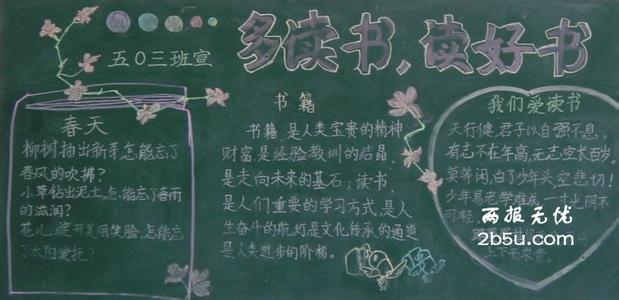 五〇三班宣
多读书,读好书
春天
柳树抽出新芽,怎能忘了
春风的吹拂?
小草钻出泥土,怎能忘了春雨
的滋润?
花儿绽开美丽笑脸,怎能忘
了太阳爱抚?
书籍
书籍是人类宝贵的精神
财富,是经验教训的结晶,
是走向未来的基石;读书,
是人们重要的学习方式,是人
生奋斗的航灯是文化传承的通道
是人类进步的阶梯。
我们爱读书
天行健,君子以自强不息。
有志不在年高,无志空长百岁。
莫等闲,白了少年头,空悲切!
少年易老学难成,一寸光阴不
可轻。
上下而求索。
两报无忧
2b5u.com